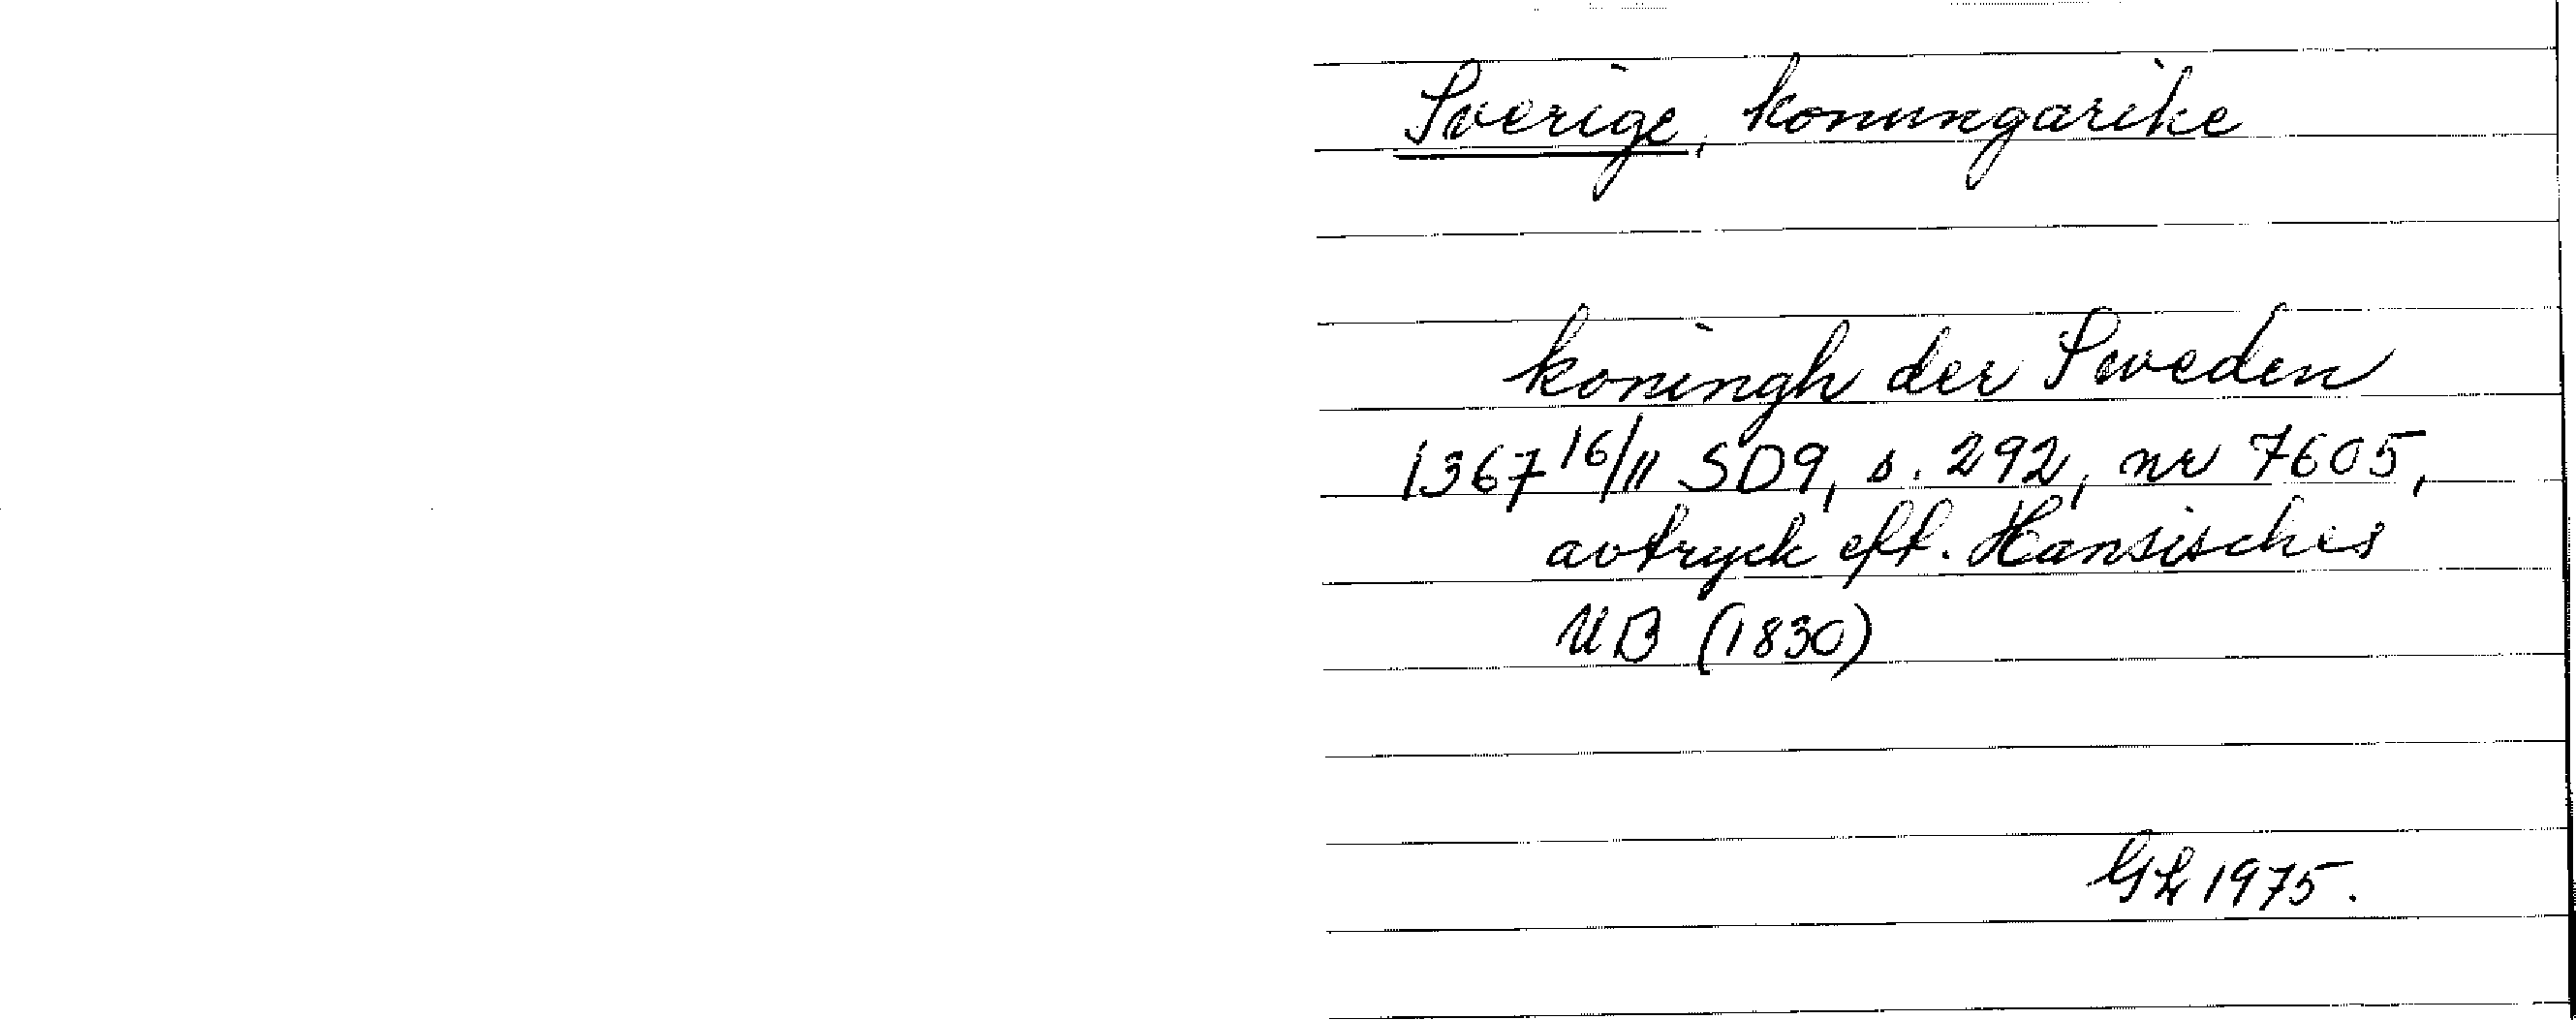 Sverige, konungarike
koningh der Sweden
1367 16/11 SD9, s. 292, nr 7605,
avtryck eft. Hansisches
UB (1830)
GL 1975.